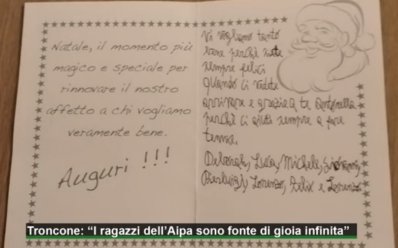 Natale, il momento più
magico e speciale per
rinnovare il nostro
affetto a chi vogliamo
veramente bene.
Auguri !!!
Vi vogliamo tanto
bene perchè siete
sempre felici
quando ci vedete
arrivare e grazie a te Antonella
perchè ci aiuti sempre a fare
Deborah, Luca, Michele,
Pierluigi, Lorenzo, Felix e Lorenzo
Troncone: “I ragazzi dell’Aipa sono fonte di gioia infinita”